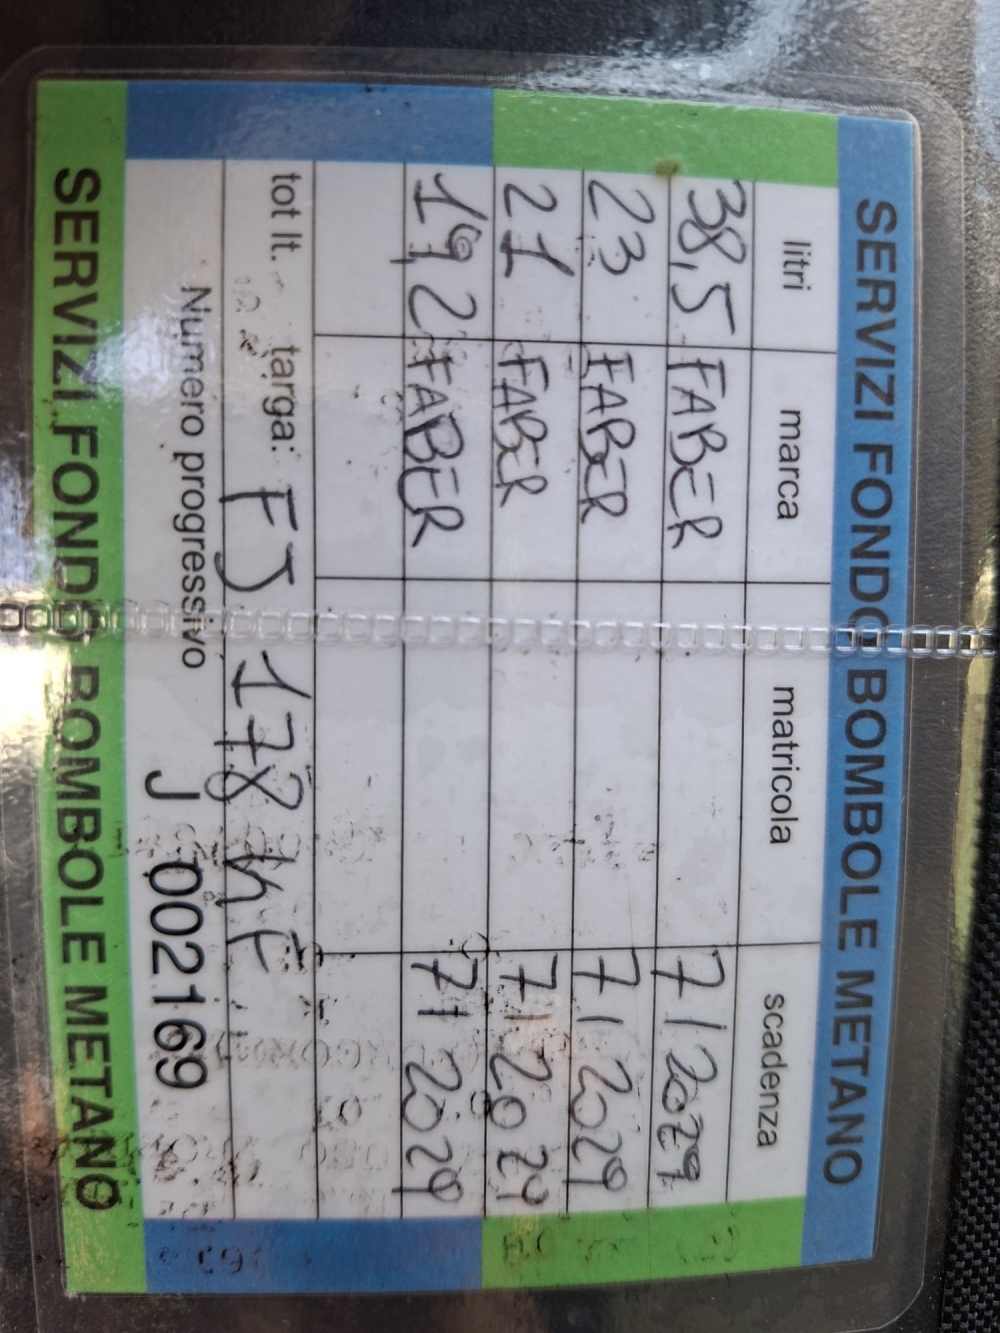 SERVIZI FONDO BOMBOLE METANO
litri marca matricola scadenza
38,5 FABER 7/2029
23 FABER 7/2029
21 FABER 7/2029
19,2 FABER 7/2029
tot lt. targa: FJ 178
Numero progressivo J 002169
SERVIZI FONDO BOMBOLE METANO